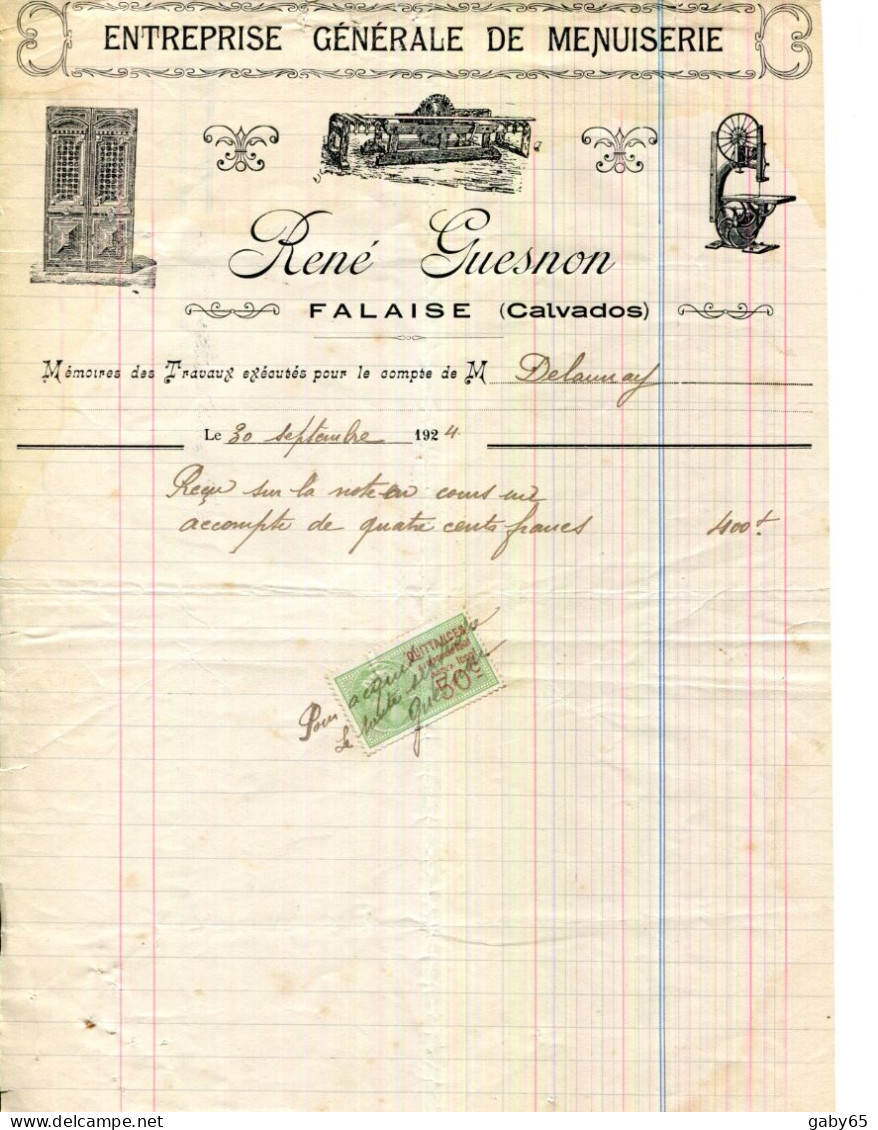 ENTREPRISE GÉNÉRALE DE MENUISERIE
René Guesnon
FALAISE (Calvados)
Mémoires des Travaux exécutés pour le compte de M Delaunay
Le 30 septembre 1924
Reçu sur la note en cours un
accompte de quatre cents francs 400f
QUITTANCES
50c
Pour acquit
Le trente
gaby65